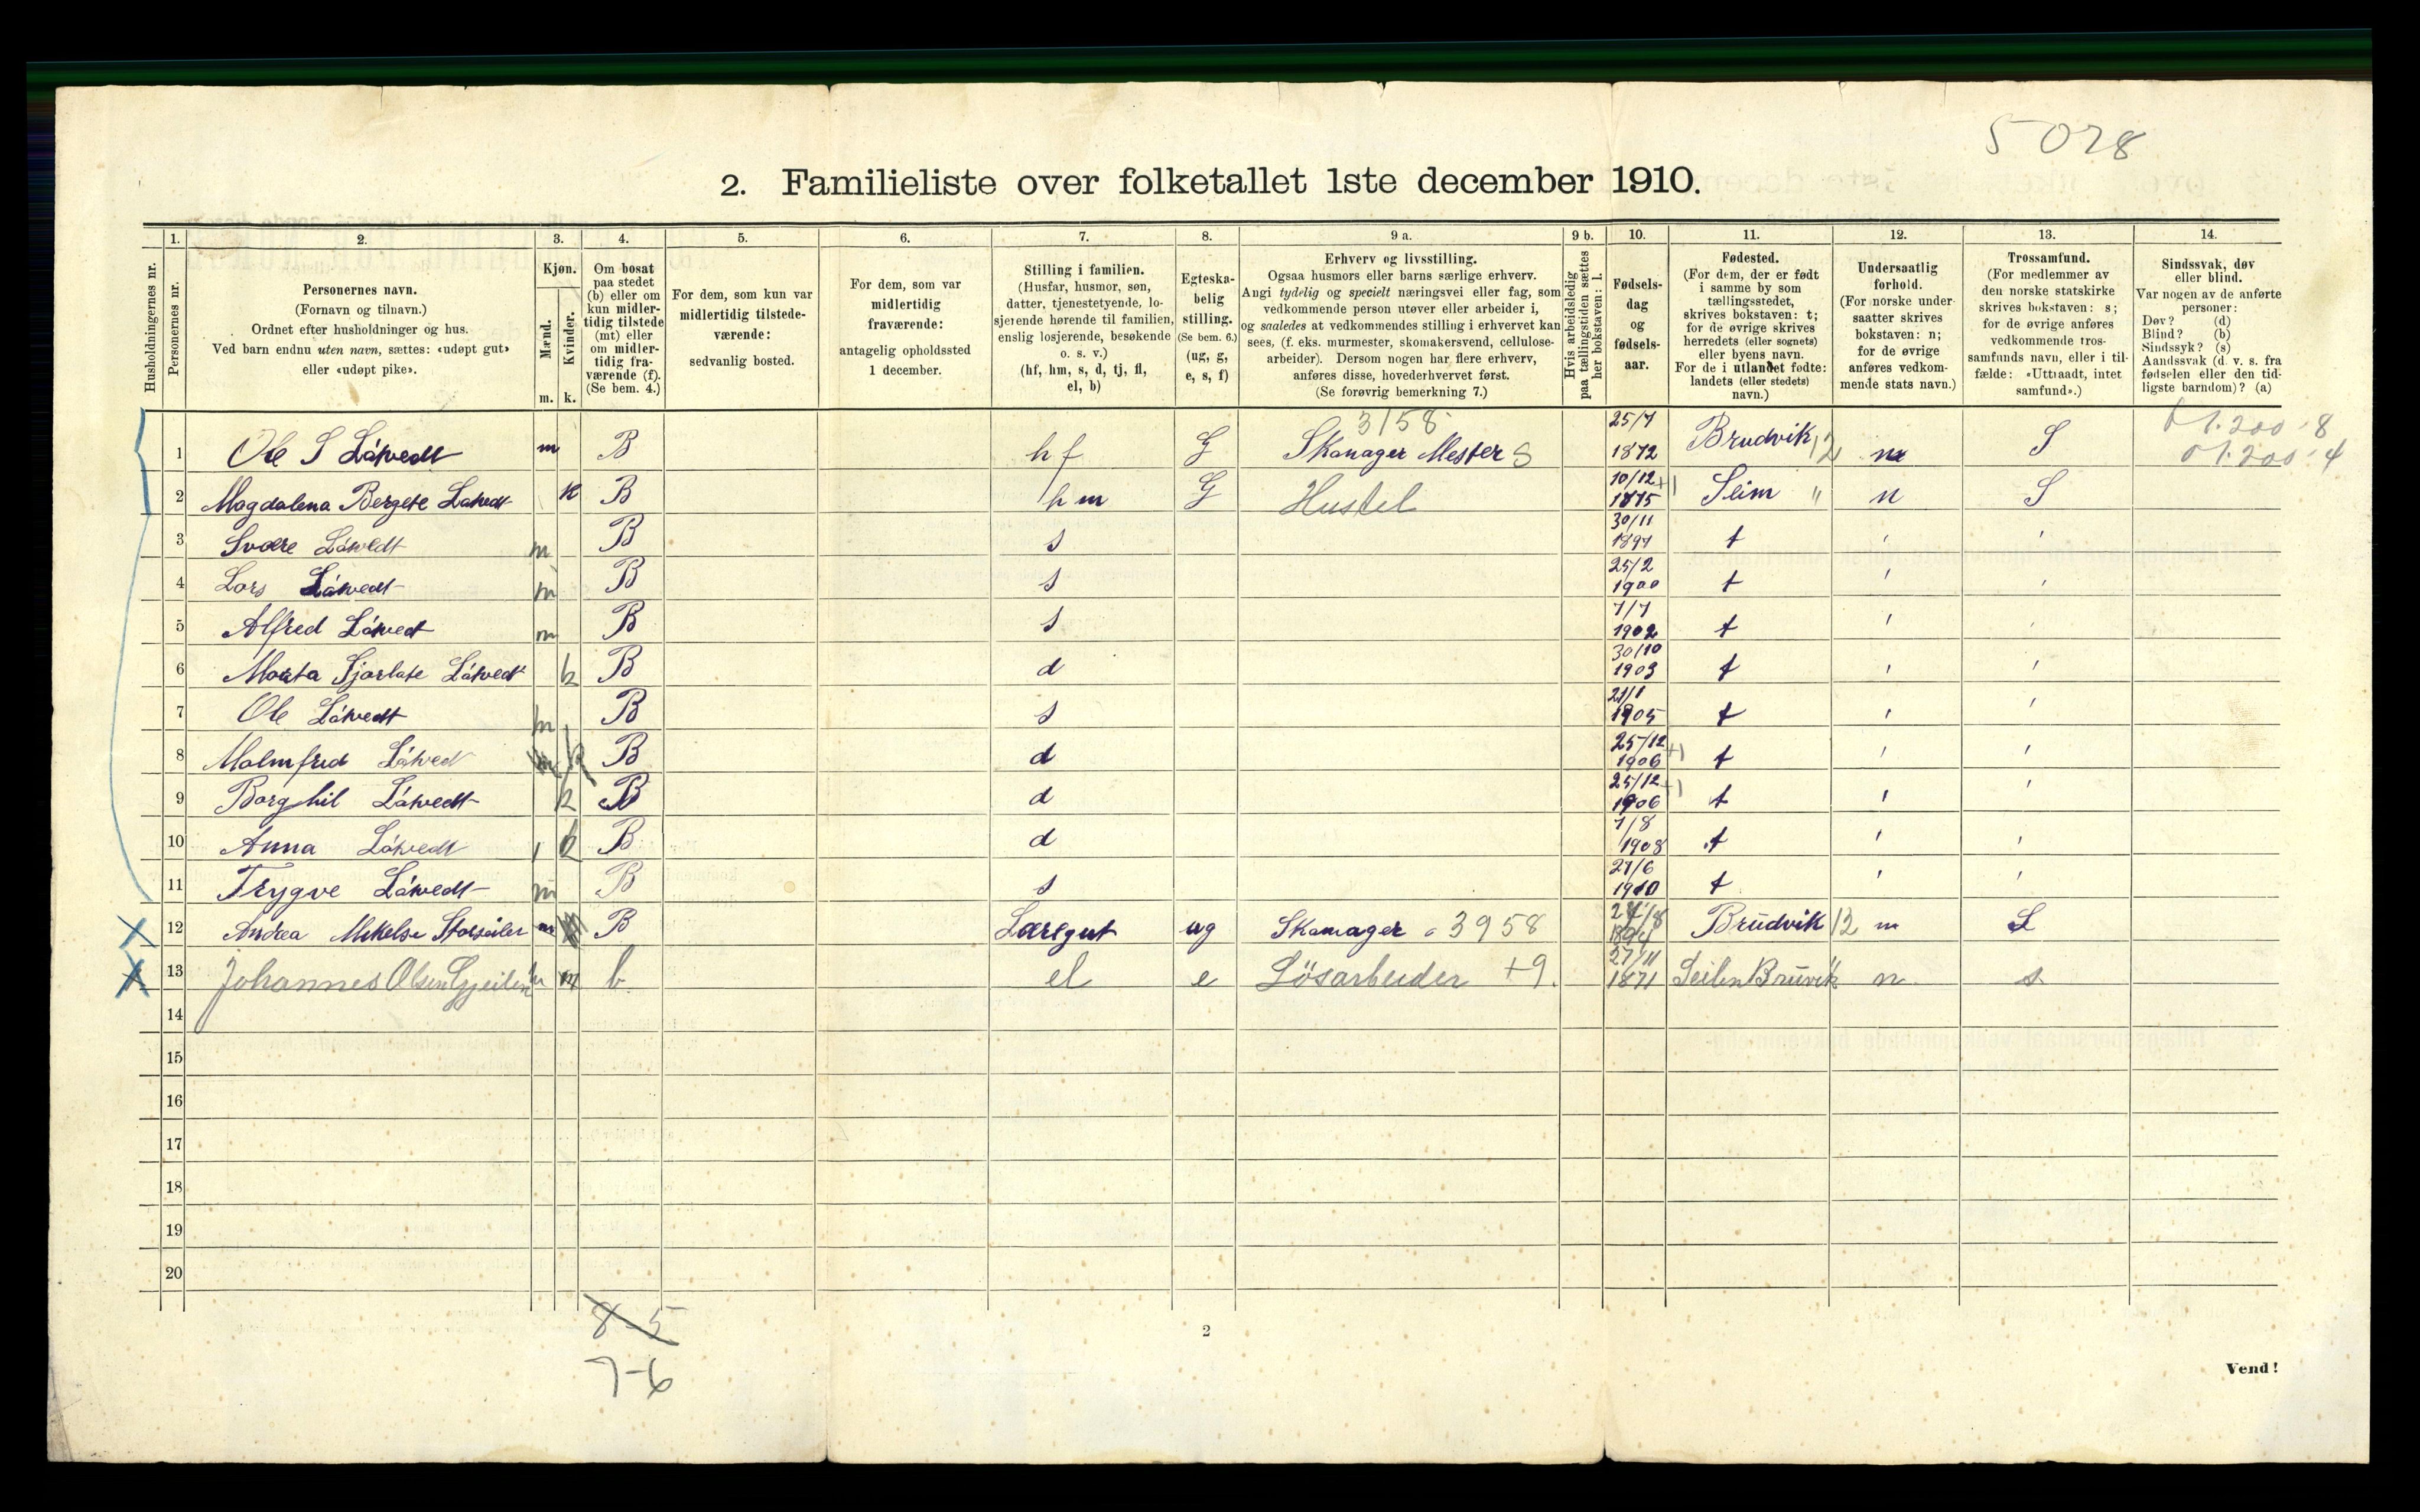 5028
2. Familieliste over folketallet 1ste december 1910.
Husholdningernes nr.
1. Personernes nr.
2. Personernes navn.
(Fornavn og tilnavn.)
Ordnet efter husholdninger og hus.
Ved barn endnu uten navn, sættes: «udøpt gut»
eller «udøpt pike».
3. Kjøn.
Mænd. m.
Kvinder. k.
4. Om bosat
paa stedet
(b) eller om
kun midler-
tidig tilstede
(mt) eller
om midler-
tidig fra-
værende (f).
(Se bem. 4.)
5. For dem, som kun var
midlertidig tilstede-
værende:
sedvanlig bosted.
6. For dem, som var
midlertidig
fraværende:
antagelig opholdssted
1 december.
7. Stilling i familien.
(Husfar, husmor, søn,
datter, tjenestetyende, lo-
sjerende hørende til familien,
enslig losjerende, besøkende
o. s. v.)
(hf, hm, s, d, tj, fl,
el, b)
8. Egteska-
belig
stilling.
(Se bem. 6.)
(ug, g,
e, s, f)
9 a. Erhverv og livsstilling.
Ogsaa husmors eller barns særlige erhverv.
Angi tydelig og specielt næringsvei eller fag, som
vedkommende person utøver eller arbeider i,
og saaledes at vedkommendes stilling i erhvervet kan
sees, (f. eks. murmester, skomakersvend, cellulose-
arbeider). Dersom nogen har flere erhverv,
anføres disse, hovederhvervet først.
(Se forøvrig bemerkning 7.)
9 b. Hvis arbeidsledig
paa tællingstiden sættes
her bokstaven: l.
10. Fødsels-
dag
og
fødsels-
aar.
11. Fødested.
(For dem, der er født
i samme by som
tællingsstedet,
skrives bokstaven: t;
for de øvrige skrives
herredets (eller sognets)
eller byens navn.
For de i utlandet fødte:
landets (eller stedets)
navn.)
12. Undersaatlig
forhold.
(For norske under-
saatter skrives
bokstaven: n;
for de øvrige
anføres vedkom-
mende stats navn.)
13. Trossamfund.
(For medlemmer av
den norske statskirke
skrives bokstaven: s;
for de øvrige anføres
vedkommende tros-
samfunds navn, eller i til-
fælde: «Uttraadt, intet
samfund».)
14. Sindssvak, døv
eller blind.
Var nogen av de anførte
personer:
Døv? (d)
Blind? (b)
Sindssyk? (s)
Aandssvak (d. v. s. fra
fødselen eller den tid-
ligste barndom)? (a)
3158
1 Ole S Låtvedt m B hf G Skomager Mester S 25/7 1872 Brudvik 12 n S
2 Magdalena Bergete Latvedt k B hm G Hustel 10/12 1875 +1 Seim " n S
3 Svære Låtvedt m B s 30/11 1897 t
4 Lars Låtvedt m B s 25/2 1900 t
5 Alfred Låtvedt m B s 7/7 1902 t
6 Marta Låtvedt k B d 30/10 1903 t
7 Ole Låtvedt m B s 1905 t
8 Malmfred Låtved k B d 25/12 1906 +1 t
9 Borghil Låtvedt k B d 25/12 1906 +1 t
10 Anna Låtvedt k B d 7/8 1908 t
11 Trygve Låtvedt m B s 27/6 1910 t
12 Andrea Mikelse m B Læregut ug Skomager 3958 1894 Brudvik 12 n S
13 Johannes Olsen m b el e Lösarbeider +9. 27/11 1871 Seilen Bruvik n s
14
15
16
17
18
19
20
8-5
7-6
2
Vend!